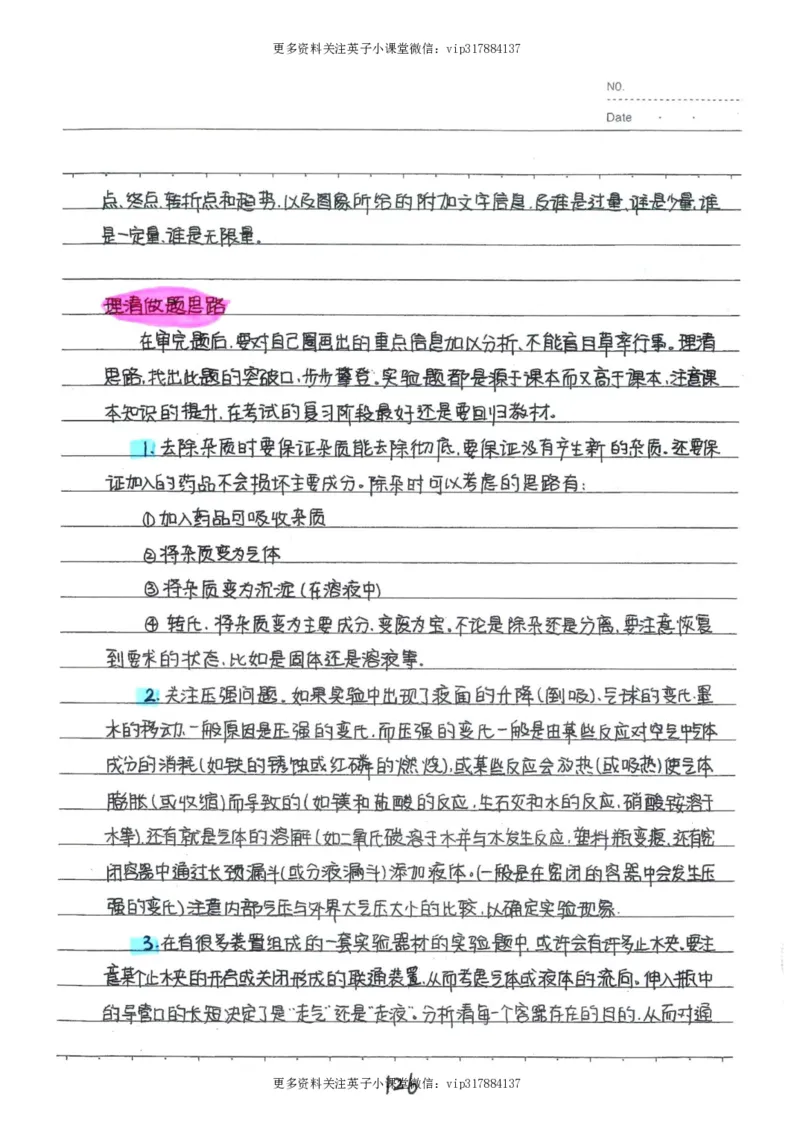 更多资料关注英子小课堂微信：vip317884137
NO.
Date
点、终点、转折点和趋势，以及图象所给的附加文字信息，及谁是过量、谁是少量，谁
是一定量、谁是无限量。
理清做题思路
在审完题后，要对自己圈画出的重点信息加以分析、不能盲目草率行事。理清
思路，找出此题的突破口，步步攀登。实验题都是源于课本而又高于课本，注意课
本知识的提升，在考试的复习阶段最好还是要回归教材。
1. 去除杂质时要保证杂质能去除彻底，要保证没有产生新的杂质。还要保
证加入的药品不会损坏主要成分。除杂时可以考虑的思路有：
①加入药品可吸收杂质
②将杂质变为气体
③将杂质变为沉淀（在溶液中）
④ 转化，将杂质变为主要成分、变废为宝。不论是除杂还是分离，要注意恢复
到要求的状态，比如是固体还是溶液等。
2. 关注压强问题。如果实验中出现了液面的升降（倒吸）、气球的变化、墨
水的移动，一般原因是压强的变化，而压强的变化一般是由某些反应对空气中气体
成分的消耗（如铁的锈蚀或红磷的燃烧），或某些反应会放热（或吸热）使气体
膨胀（或收缩）而导致的（如镁和盐酸的反应，生石灰和水的反应，硝酸铵溶于
水等），还有就是气体的溶解（如二氧化碳溶于水并与水发生反应，塑料瓶变瘪，还有密
闭容器中通过长颈漏斗（或分液漏斗）添加液体。（一般是在密闭的容器中会发生压
强的变化）注意内部气压与外界大气压大小的比较，以确定实验现象．
3. 在有很多装置组成的一套实验器材的实验题中，或许会有许多止水夹。要注
意某个止水夹的开启或关闭形成的联通装置，从而考虑气体或液体的流向。伸入瓶中
的导管口的长短决定了是“走气”还是“走液”。分析清每一个容器存在的目的，从而对通
126
更多资料关注英子小课堂微信：vip317884137